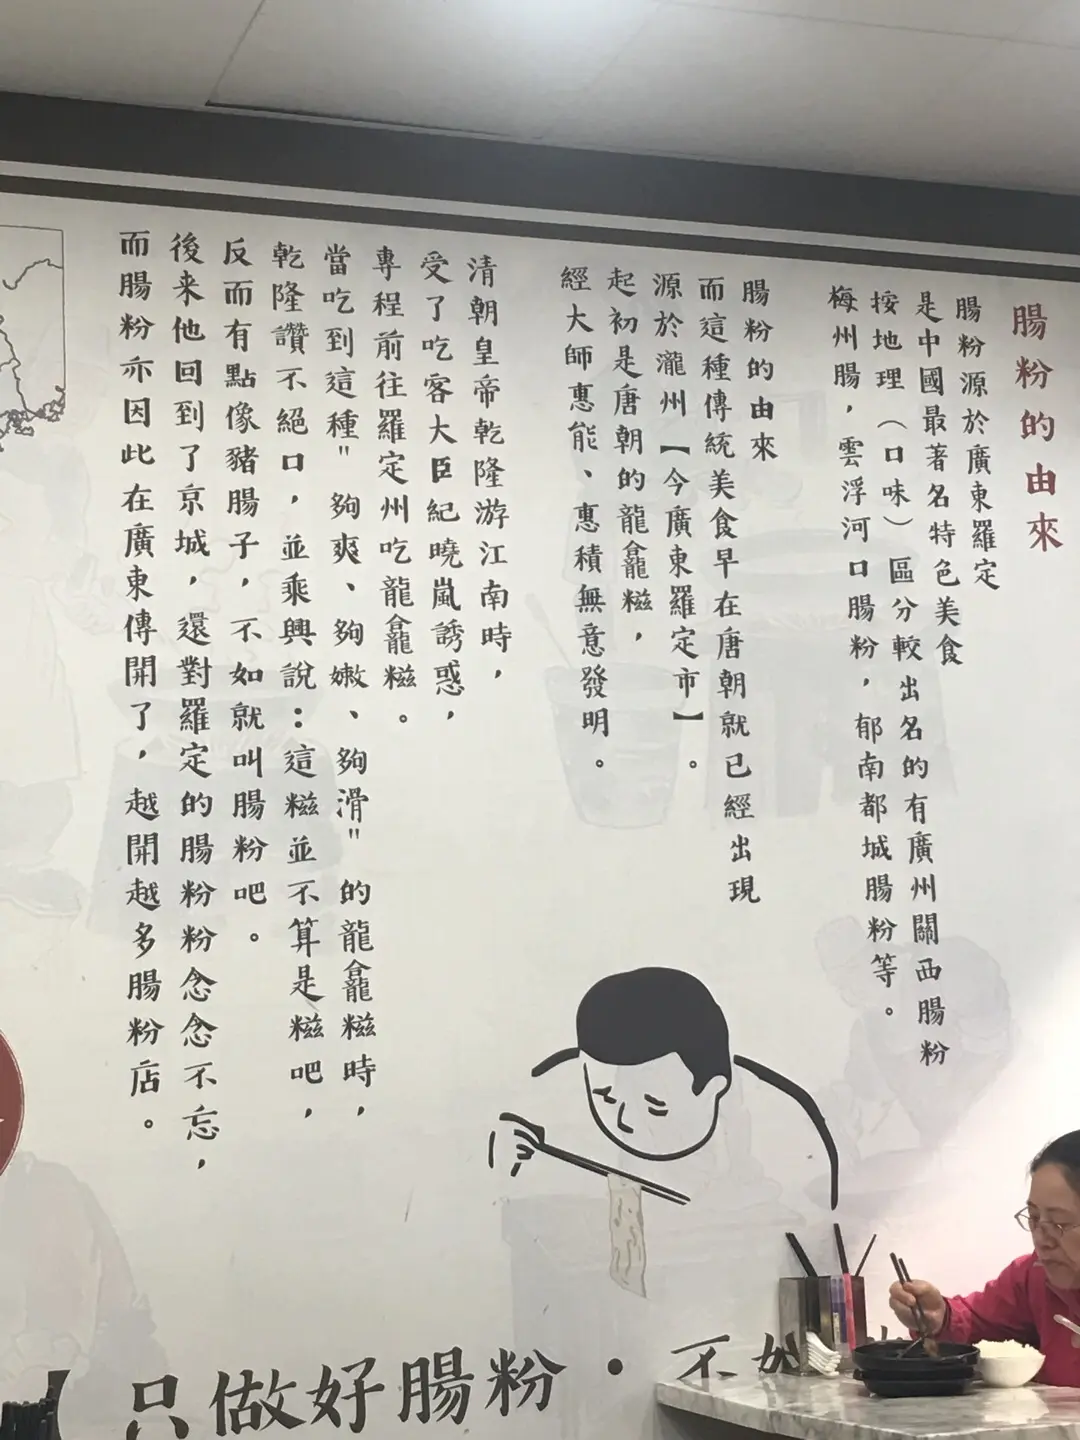 腸粉的由來
腸粉源於廣東羅定
是中國最著名特色美食
按地理（口味）區分較出名的有廣州關西腸粉
梅州腸，雲浮河口腸粉，郁南都城腸粉等。
腸粉的由來
而這種傳統美食早在唐朝就已經出現
源於瀧州【今廣東羅定市】。
起初是唐朝的龍龕糍，
經大師惠能、惠積無意發明。
清朝皇帝乾隆游江南時，
受了吃客大臣紀曉嵐誘惑，
專程前往羅定州吃龍龕糍。
當吃到這種"夠爽、夠嫩、夠滑"的龍龕糍時，
乾隆讚不絕口，並乘興說：這糍並不算是糍吧，
反而有點像豬腸子，不如就叫腸粉吧。
後来他回到了京城，還對羅定的腸粉粉念念不忘，
而腸粉亦因此在廣東傳開了，越開越多腸粉店。
只做好腸粉·不